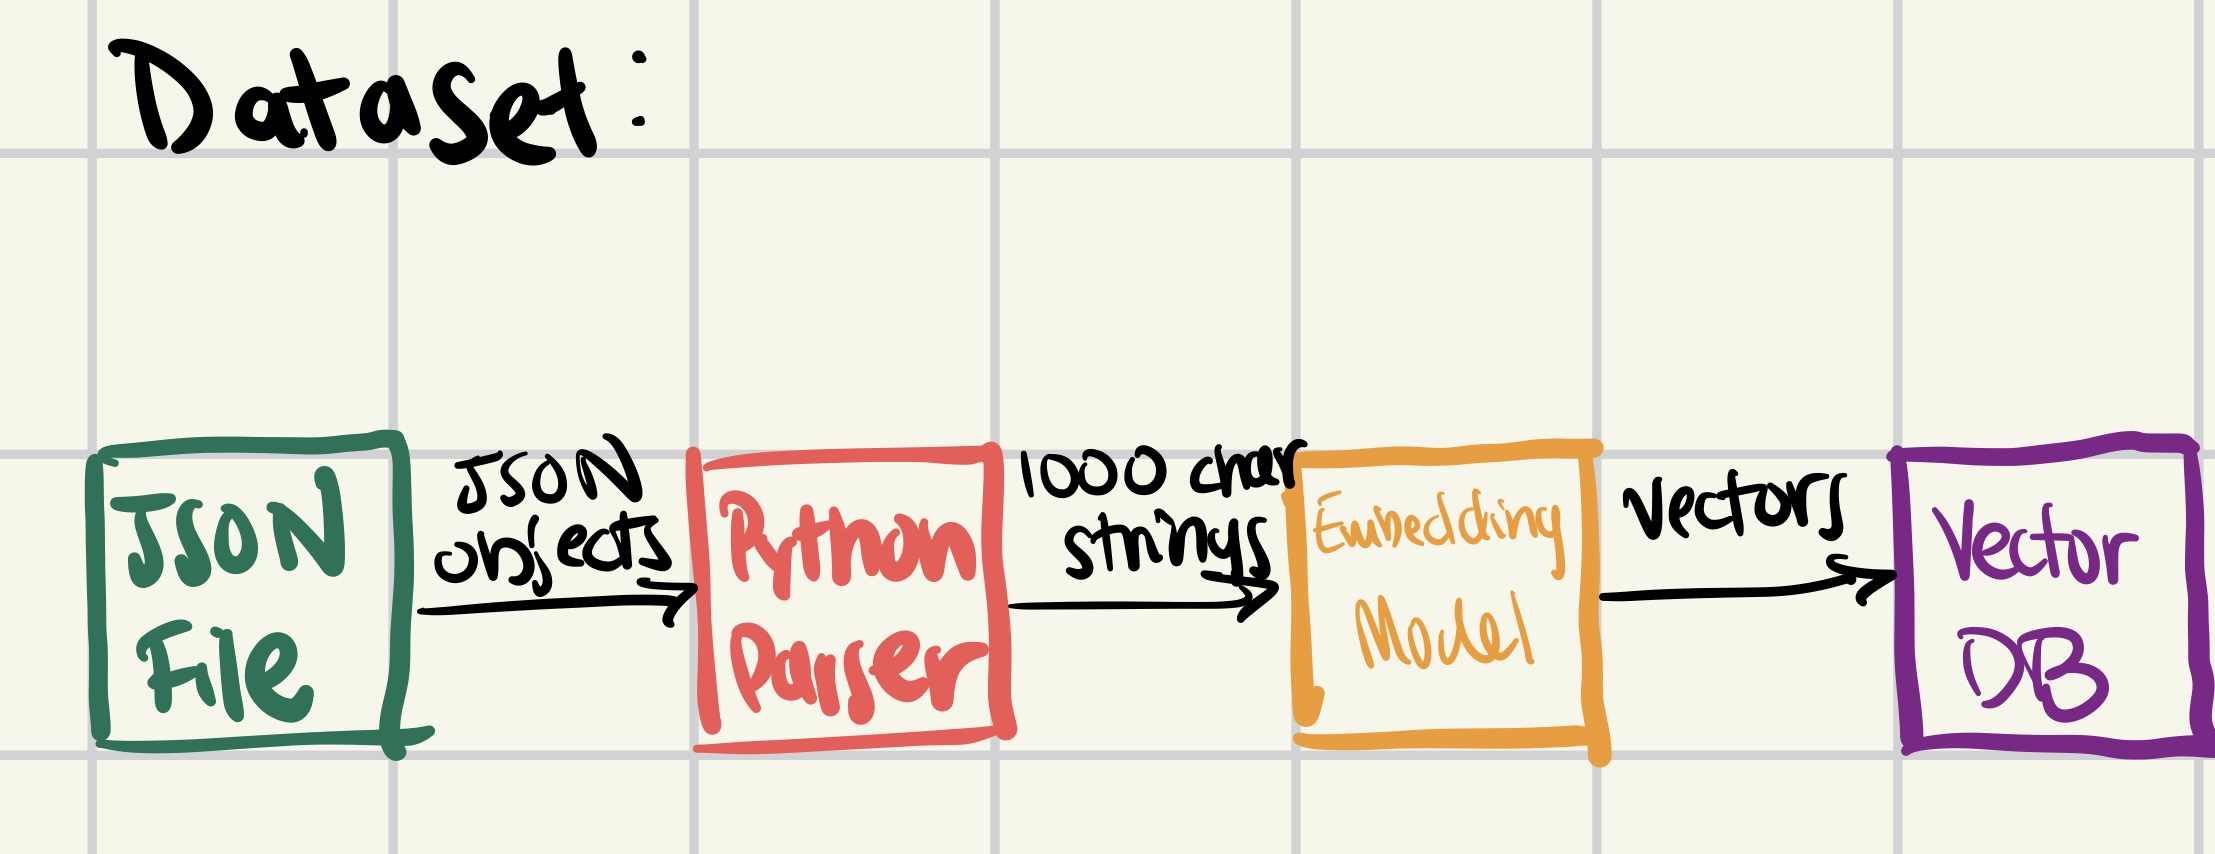 Dataset:
JSON
File
JSON
objects
Python
Parser
1000 char
strings
Embedding
Model
vectors
Vector
DB